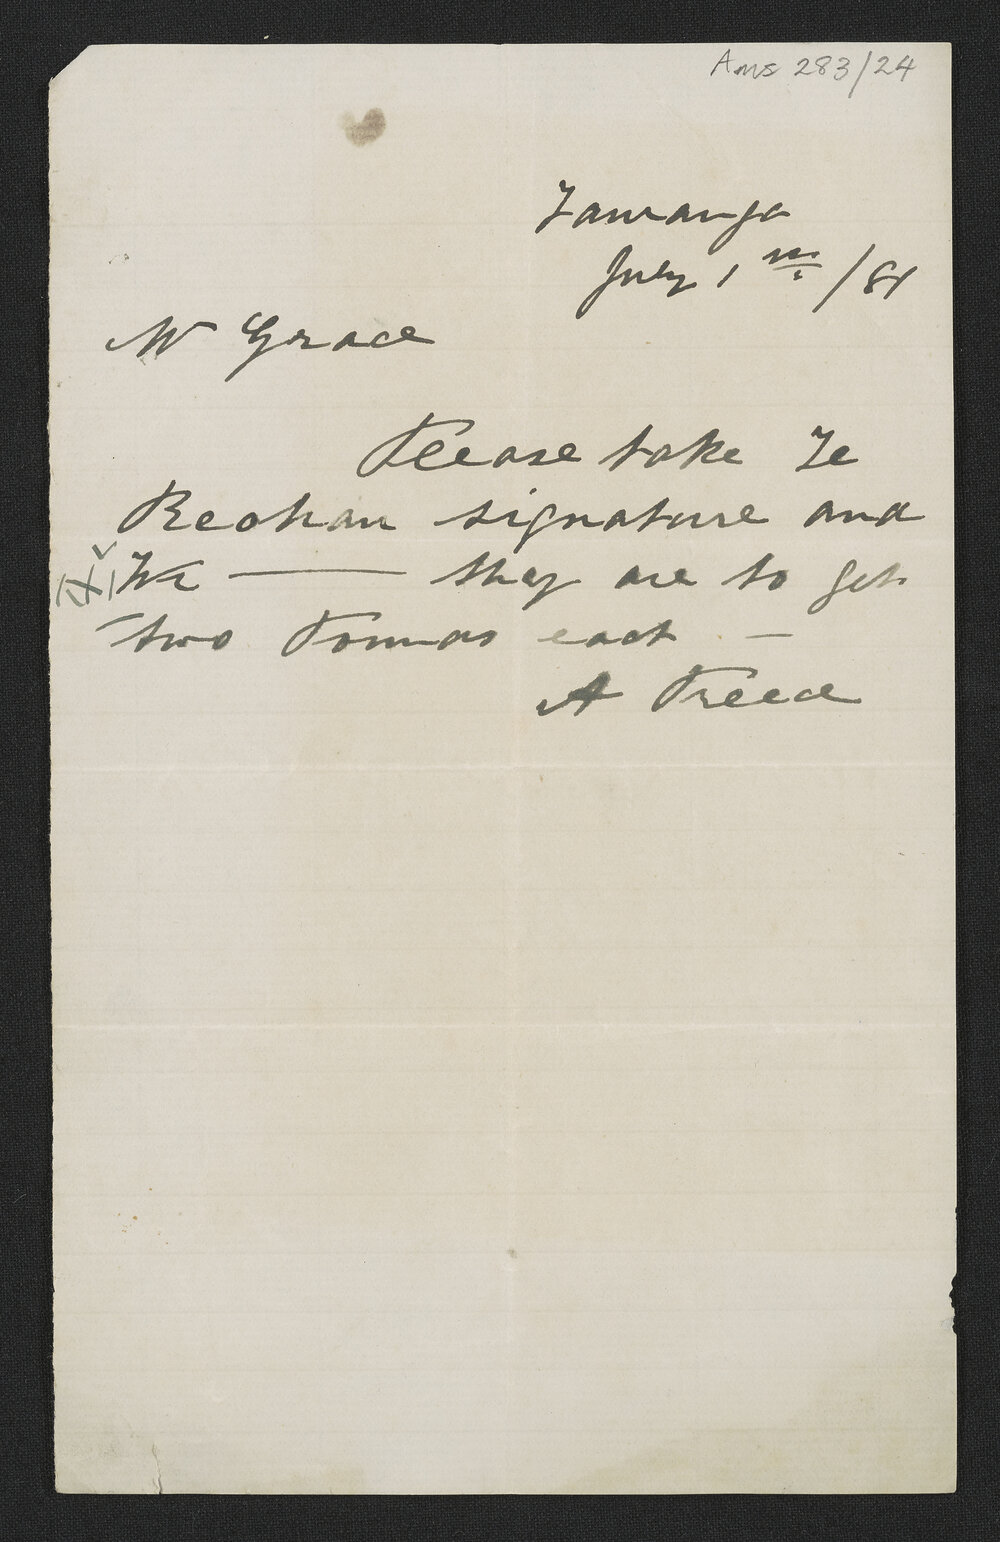 Ams 283/24
Tauranga
July 1st /81
Mr Grace
Please take Te
Reohau signature and
they are to get
two Pounds each —
A Preece